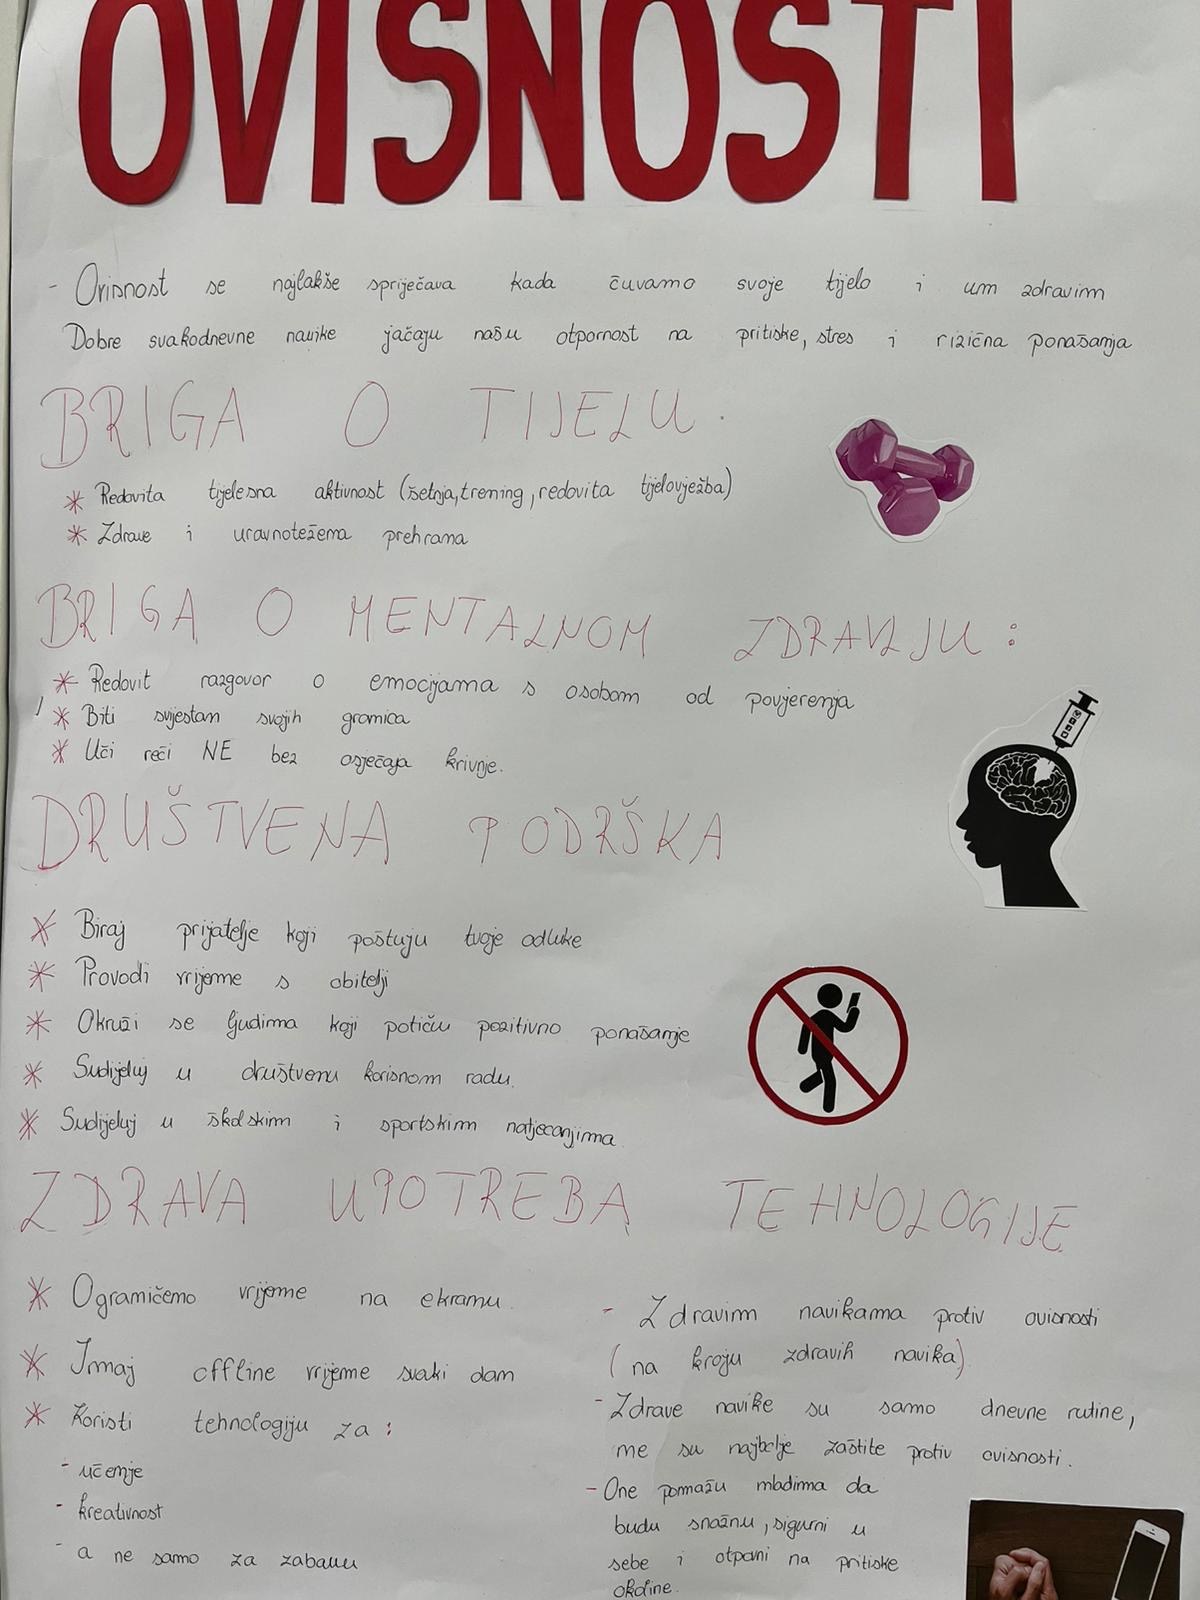 OVISNOSTI
- Ovisnost se najlakše spriječava kada čuvamo svoje tijelo i um zdravim
Dobre svakodnevne navike jačaju našu otpornost na pritiske, stres i rizična ponašanja
BRIGA O TIJELU.
* Redovita tijelesna aktivnost (šetnja, trening, redovita tijelovježba)
* Zdrave i uravnotežena prehrana
BRIGA O MENTALNOM ZDRAVLJU:
* Redovit razgovor o emocijama s osobom od povjerenja
* Biti svjestan svojih granica
* Uči reči NE bez osječaja krivnje.
DRUŠTVENA PODRŠKA
* Biraj prijatelje koji poštuju tvoje odluke
* Provodi vrijeme s obitelji
* Okruži se ljudima koji potiču pozitivno ponašanje
* Sudijeluj u društvenu korisnom radu.
* Sudijeluj u školskim i sportskim natjecanjima
ZDRAVA UPOTREBA TEHNOLOGIJE
* Ograničeno vrijeme na ekranu.
* Imaj offline vrijeme svaki dan
* Koristi tehnologiju za:
- učenje
- kreativnost
- a ne samo za zabavu
- Zdravim navikama protiv ovisnosti
(na kroju zdravih navika)
- Zdrave navike su samo dnevne rutine,
ne su najbolje zaštite protiv ovisnosti.
- One pomažu mladima da
budu snažnu, sigurni u
sebe i otporni na pritiske
okoline.